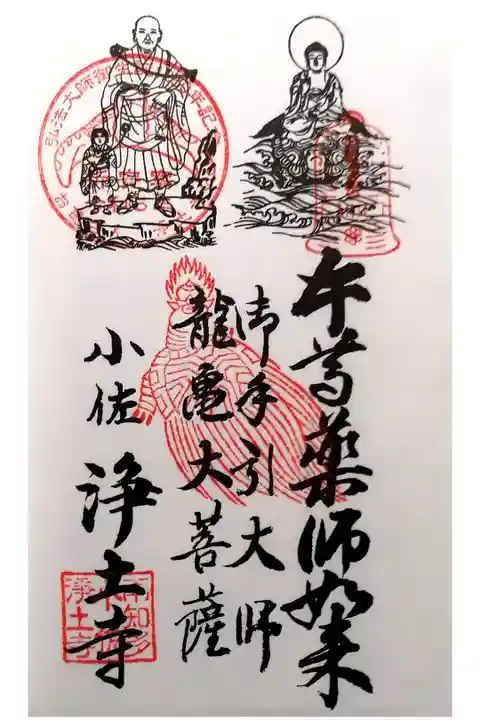 本尊薬師如来
御手引大師
龍亀大菩薩
小佐
浄土寺
弘法大師御
年記
南知多
浄土寺